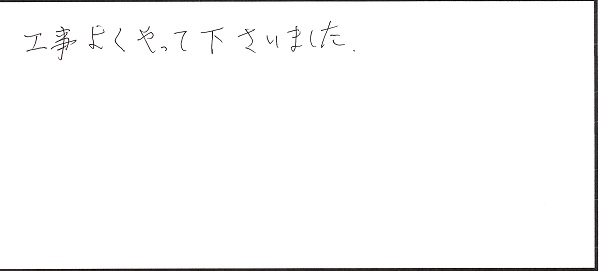 工事よくやって下さいました.